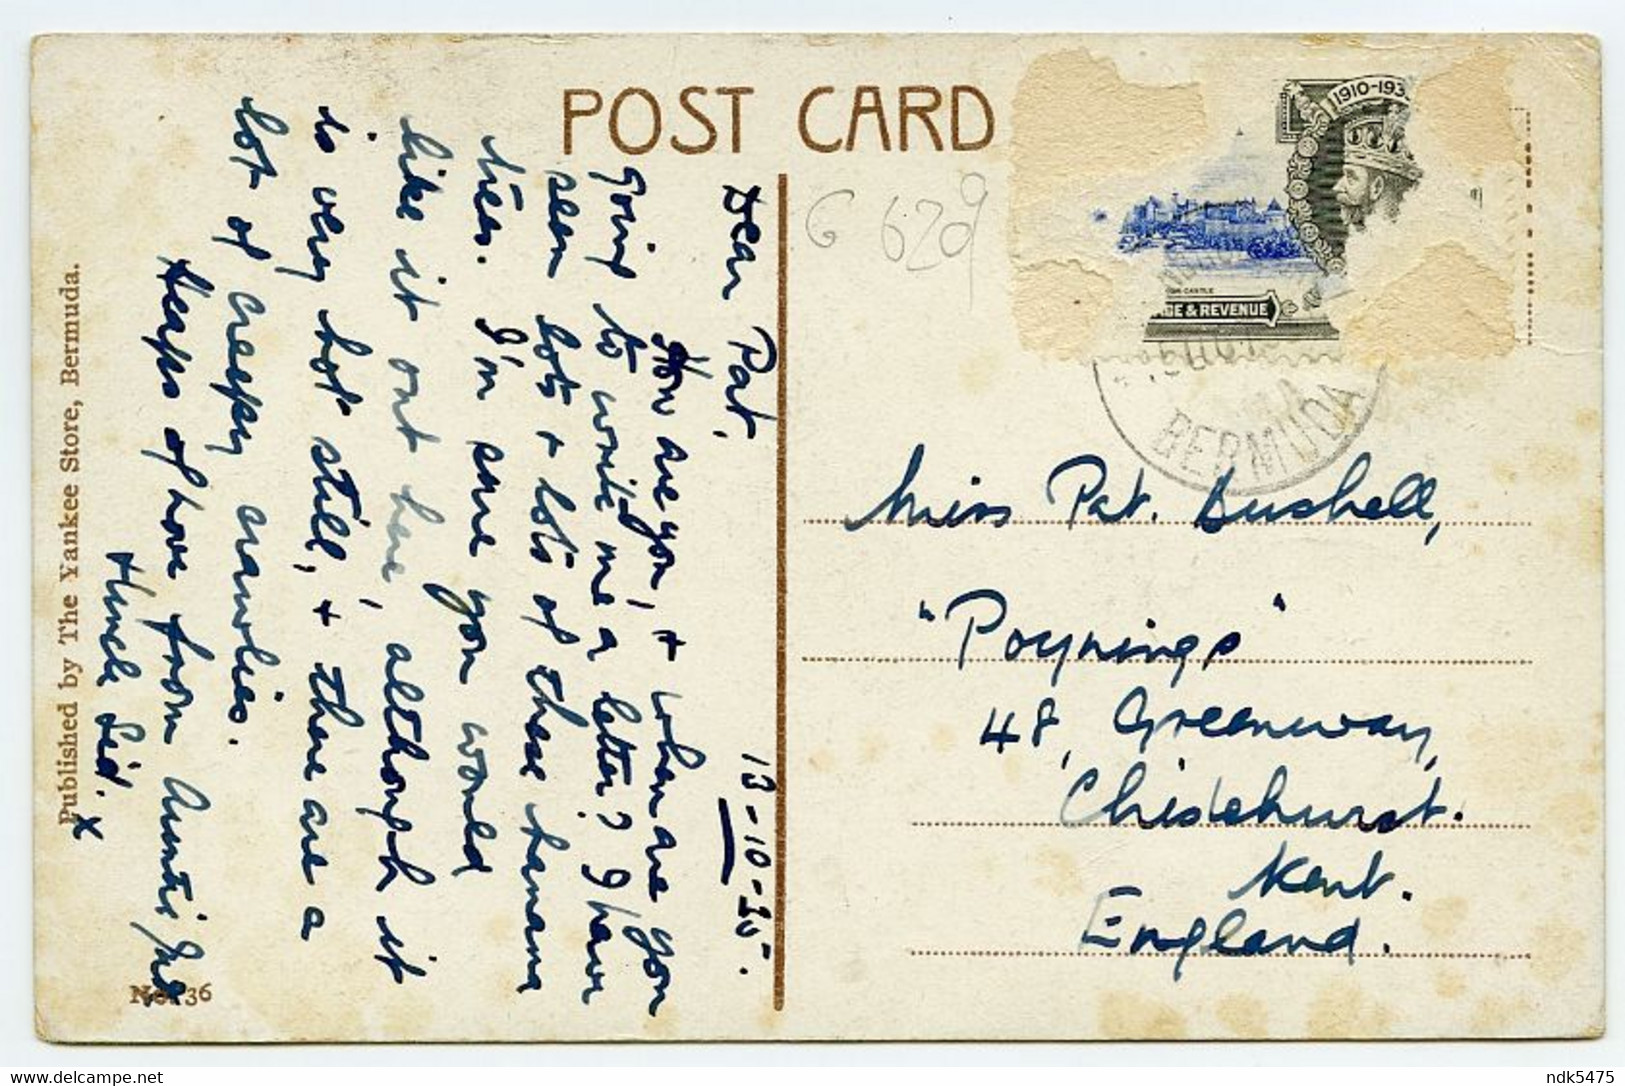 POST CARD
13-10-35.
Dear Pat,
How are you, + when are you
going to write me a letter? I have
seen lots + lots of these banana
trees. I'm sure you would
like it out here, although it
is very hot still, + there are a
lot of creepy crawlies.
Heaps of love from Auntie
+ Uncle Sid.
x
Published by The Yankee Store, Bermuda.
No. 36
G 6209
1910-193
OR CASTLE
GE & REVENUE
BERMUDA
Miss Pat. Bushell,
"Poynings"
48, Greenway,
Chislehurst.
Kent.
England.
ndk5475